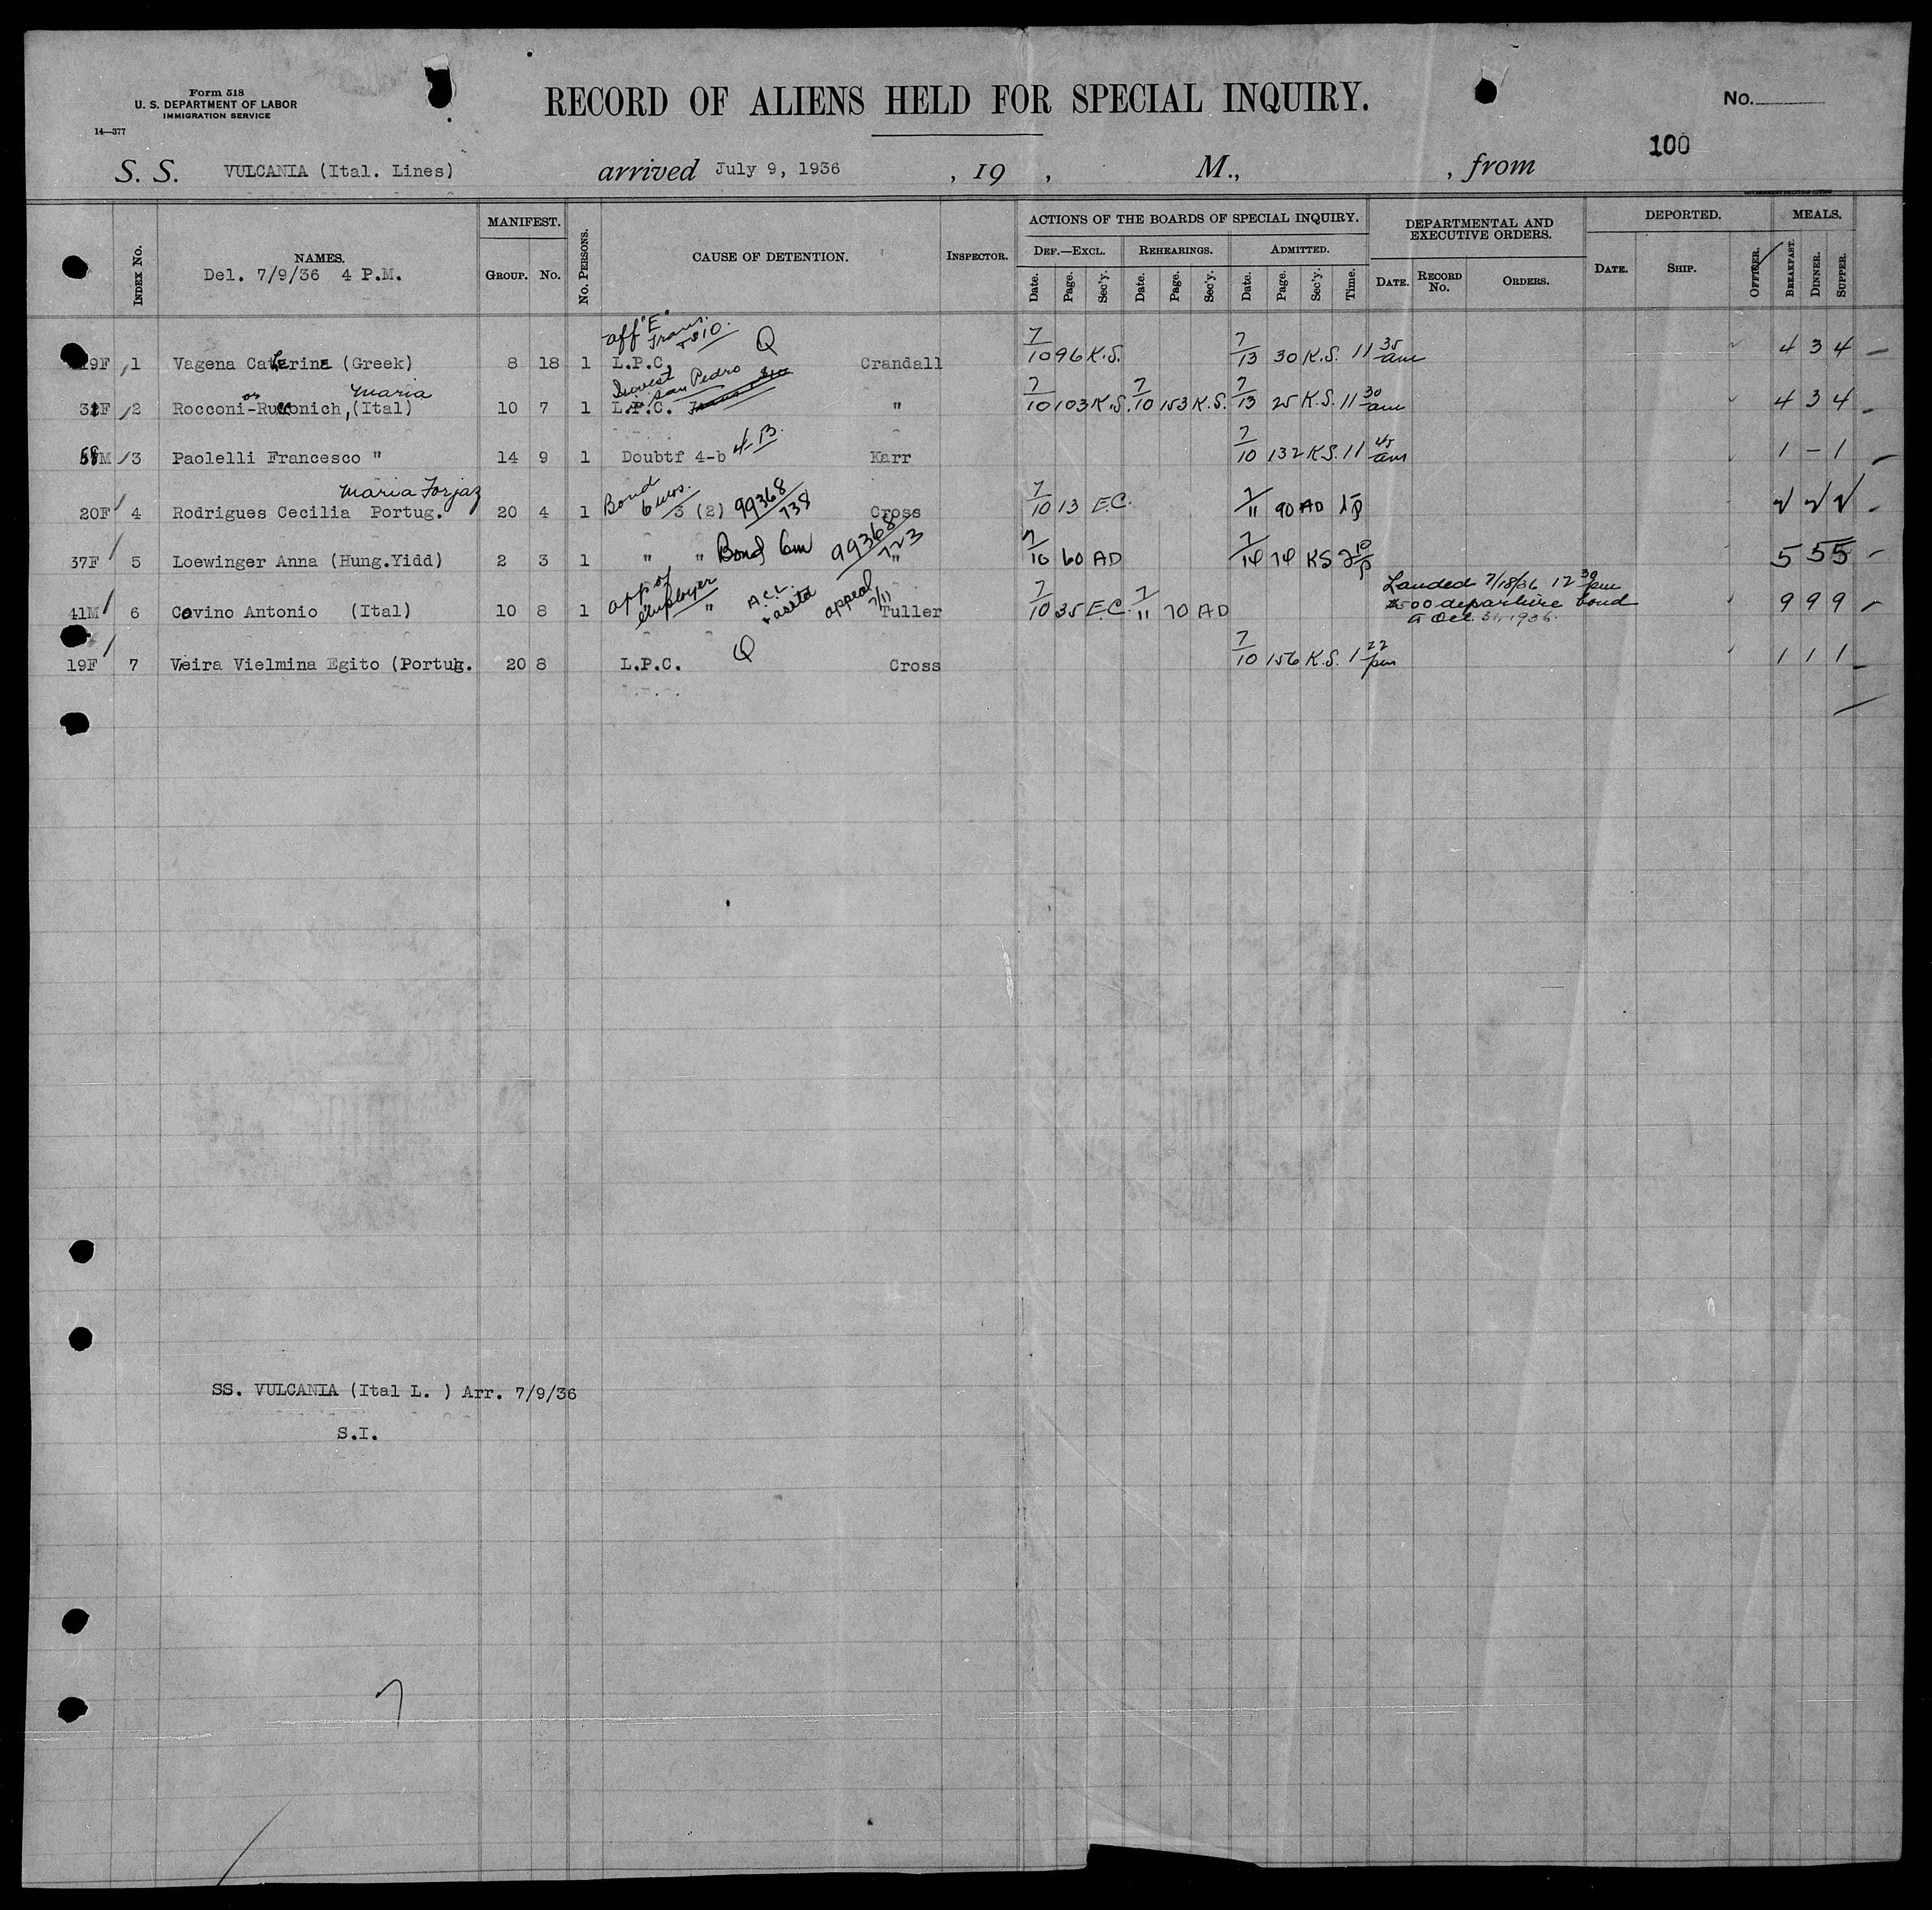 Form 518
U. S. DEPARTMENT OF LABOR
IMMIGRATION SERVICE
14—377
RECORD OF ALIENS HELD FOR SPECIAL INQUIRY.
No.
100
S. S. VULCANIA (Ital. Lines) arrived July 9, 1936 , 19 , M., , from
INDEX No. NAMES. MANIFEST. GROUP. No. No. PERSONS. CAUSE OF DETENTION. INSPECTOR. ACTIONS OF THE BOARDS OF SPECIAL INQUIRY. DEF.—EXCL. REHEARINGS. ADMITTED. DEPARTMENTAL AND EXECUTIVE ORDERS. DEPORTED. MEALS.
Date. Page. Sec'y. Date. Page. Sec'y. Date. Page. Sec'y. Time. DATE. RECORD No. ORDERS. DATE. SHIP. OFFICER. BREAKFAST. DINNER. SUPPER.
Del. 7/9/36 4 P.M.
aff "E" Trans. $10. Q
19F 1 Vagena Catherine (Greek) 8 18 1 L.P.C. Crandall 7/10 96 K.S. 7/13 30 K.S. 11 35 am 4 3 4
or Maria Invest San Pedro
2 Rocconi- (Ital) 10 7 1 L.P.C. " 7/10 103 K.S. 7/10 153 K.S. 7/13 25 K.S. 11 30 am 4 3 4
3 Paolelli Francesco " 14 9 1 Doubtf 4-b 4-B. Karr 7/10 132 K.S. 11 45 am 1 – 1
Maria Forjaz Bond 6 mos.
20F 4 Rodrigues Cecilia Portug. 20 4 1 3 (2) 99368/738 Cross 7/10 13 E.C. 7/11 90 AD 1 p
37F 5 Loewinger Anna (Hung.Yidd) 2 3 1 " " Bond 6m 99368/723 " 7/10 60 AD 7/14 74 KS 2 10 p 5 5 5
app of employer A.C.L. appeal 7/11 Landed 7/18/36 12 30 pm
41M 6 Covino Antonio (Ital) 10 8 1 " " Tuller 7/10 35 E.C. 7/11 70 AD $500 departure bond 9 9 9
to Oct. 31, 1936.
19F 7 Veira Vielmina Egito (Portug. 20 8 L.P.C. Q Cross 7/10 156 K.S. 1 22 pm 1 1 1
SS. VULCANIA (Ital L. ) Arr. 7/9/36
S.I.
7